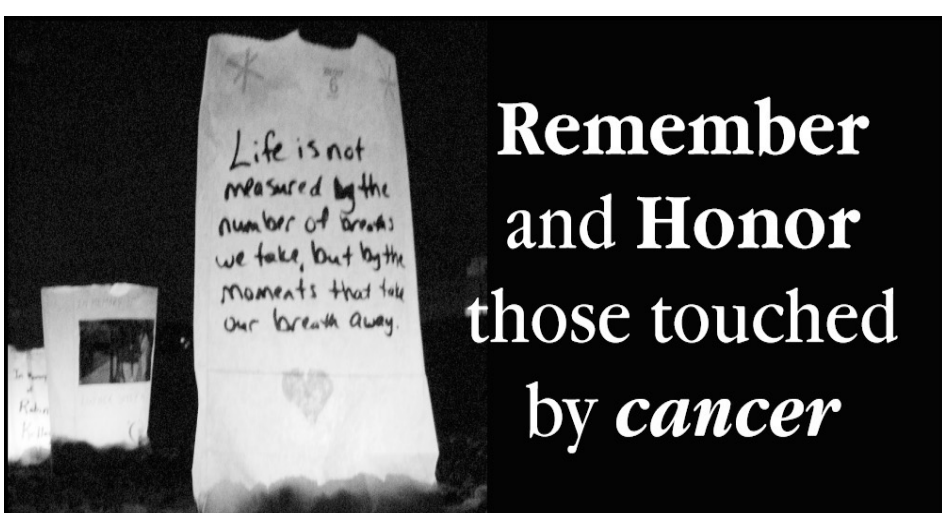 Life is not
measured by the
number of breaths
we take, but by the
moments that take
our breath away.
6
In
of
Remember
and Honor
those touched
by cancer